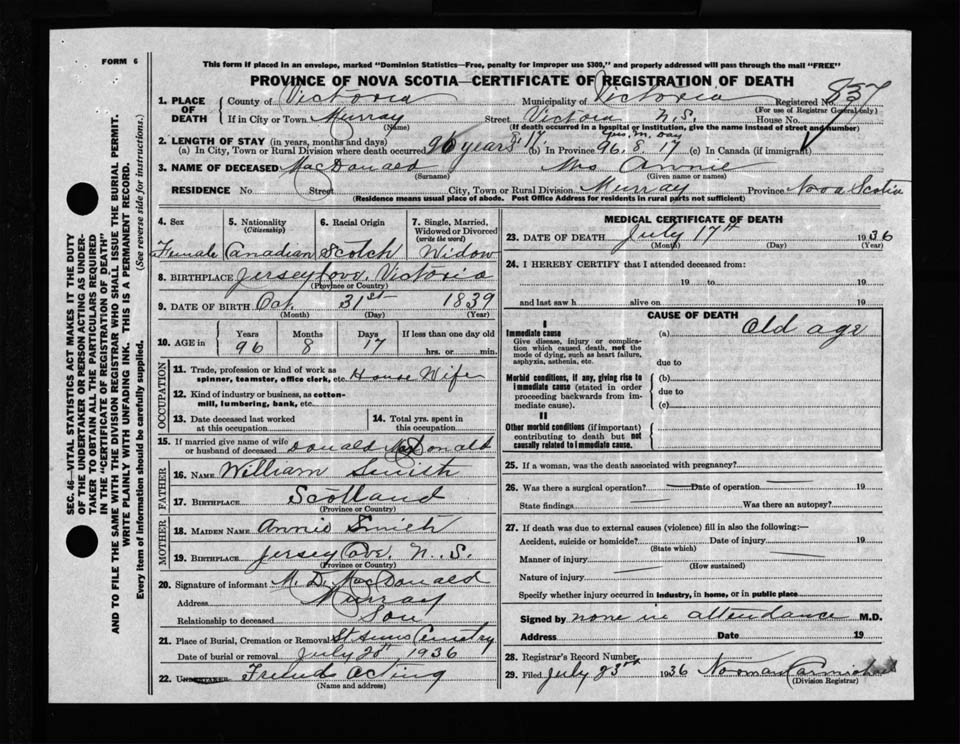 FORM 6
This form if placed in an envelope, marked "Dominion Statistics—Free, penalty for improper use $300," and properly addressed will pass through the mail "FREE"
PROVINCE OF NOVA SCOTIA—CERTIFICATE OF REGISTRATION OF DEATH
1. PLACE OF DEATH County of Victoria Municipality of Victoria Registered No. 837
(For use of Registrar General only)
If in City or Town Murray Street Victoria N.S. House No.
(Name) (If death occurred in a hospital or institution, give the name instead of street and number)
2. LENGTH OF STAY (in years, months and days) yrs. m. day
(a) In City, Town or Rural Division where death occurred 96 years 8. 17. (b) In Province 96. 8. 17 (c) In Canada (if immigrant)
3. NAME OF DECEASED MacDonald Mrs Annie
(Surname) (Given name or names)
RESIDENCE No Street City, Town or Rural Division Murray Province Nova Scotia
(Residence means usual place of abode. Post Office Address for residents in rural parts not sufficient)
SEC. 46—VITAL STATISTICS ACT MAKES IT THE DUTY
OF THE UNDERTAKER OR PERSON ACTING AS UNDER-
TAKER TO OBTAIN ALL THE PARTICULARS REQUIRED
IN THE "CERTIFICATE OF REGISTRATION OF DEATH"
AND TO FILE THE SAME WITH THE DIVISION REGISTRAR WHO SHALL ISSUE THE BURIAL PERMIT.
WRITE PLAINLY WITH UNFADING INK. THIS IS A PERMANENT RECORD.
Every item of information should be carefully supplied. (See reverse side for instructions.)
4. Sex 5. Nationality (Citizenship) 6. Racial Origin 7. Single, Married, Widowed or Divorced (write the word)
Female Canadian Scotch Widow
8. BIRTHPLACE Jersey Cove, Victoria
(Province or Country)
9. DATE OF BIRTH Oct. 31st 1839
(Month) (Day) (Year)
10. AGE in Years Months Days If less than one day old
96 8 17 hrs. or min.
OCCUPATION
11. Trade, profession or kind of work as spinner, teamster, office clerk, etc. House Wife
12. Kind of industry or business, as cotton-mill, lumbering, bank, etc.
13. Date deceased last worked at this occupation 14. Total yrs. spent in this occupation
15. If married give name of wife or husband of deceased Donald McDonald
FATHER
16. NAME William Smith
17. BIRTHPLACE Scotland
(Province or Country)
MOTHER
18. MAIDEN NAME Annie Smith
19. BIRTHPLACE Jersey Cove, N.S.
(Province or Country)
20. Signature of informant M. D. MacDonald
Address Murray
Relationship to deceased Son
21. Place of Burial, Cremation or Removal St Anns Cemetry
Date of burial or removal July 20th 1936
22. UNDERTAKER Friends Acting
(Name and address)
MEDICAL CERTIFICATE OF DEATH
23. DATE OF DEATH July 17th 1936
(Month) (Day) (Year)
24. I HEREBY CERTIFY that I attended deceased from:
19 to 19
and last saw h alive on 19
CAUSE OF DEATH
I
Immediate cause (a) Old age
Give disease, injury or complica-
tion which caused death, not the
mode of dying, such as heart failure,
asphyxia, asthenia, etc. due to
Morbid conditions, if any, giving rise to (b)
immediate cause (stated in order due to
proceeding backwards from im-
mediate cause). (c)
II
Other morbid conditions (if important)
contributing to death but not
causally related to immediate cause.
25. If a woman, was the death associated with pregnancy?
26. Was there a surgical operation? Date of operation 19
State findings Was there an autopsy?
27. If death was due to external causes (violence) fill in also the following:—
Accident, suicide or homicide? Date of injury 19
(State which)
Manner of injury
(How sustained)
Nature of injury
Specify whether injury occurred in industry, in home, or in public place
Signed by none in attendance M.D.
Address Date 19
28. Registrar's Record Number
29. Filed July 23rd 1936 Norman Carmichael
(Division Registrar)